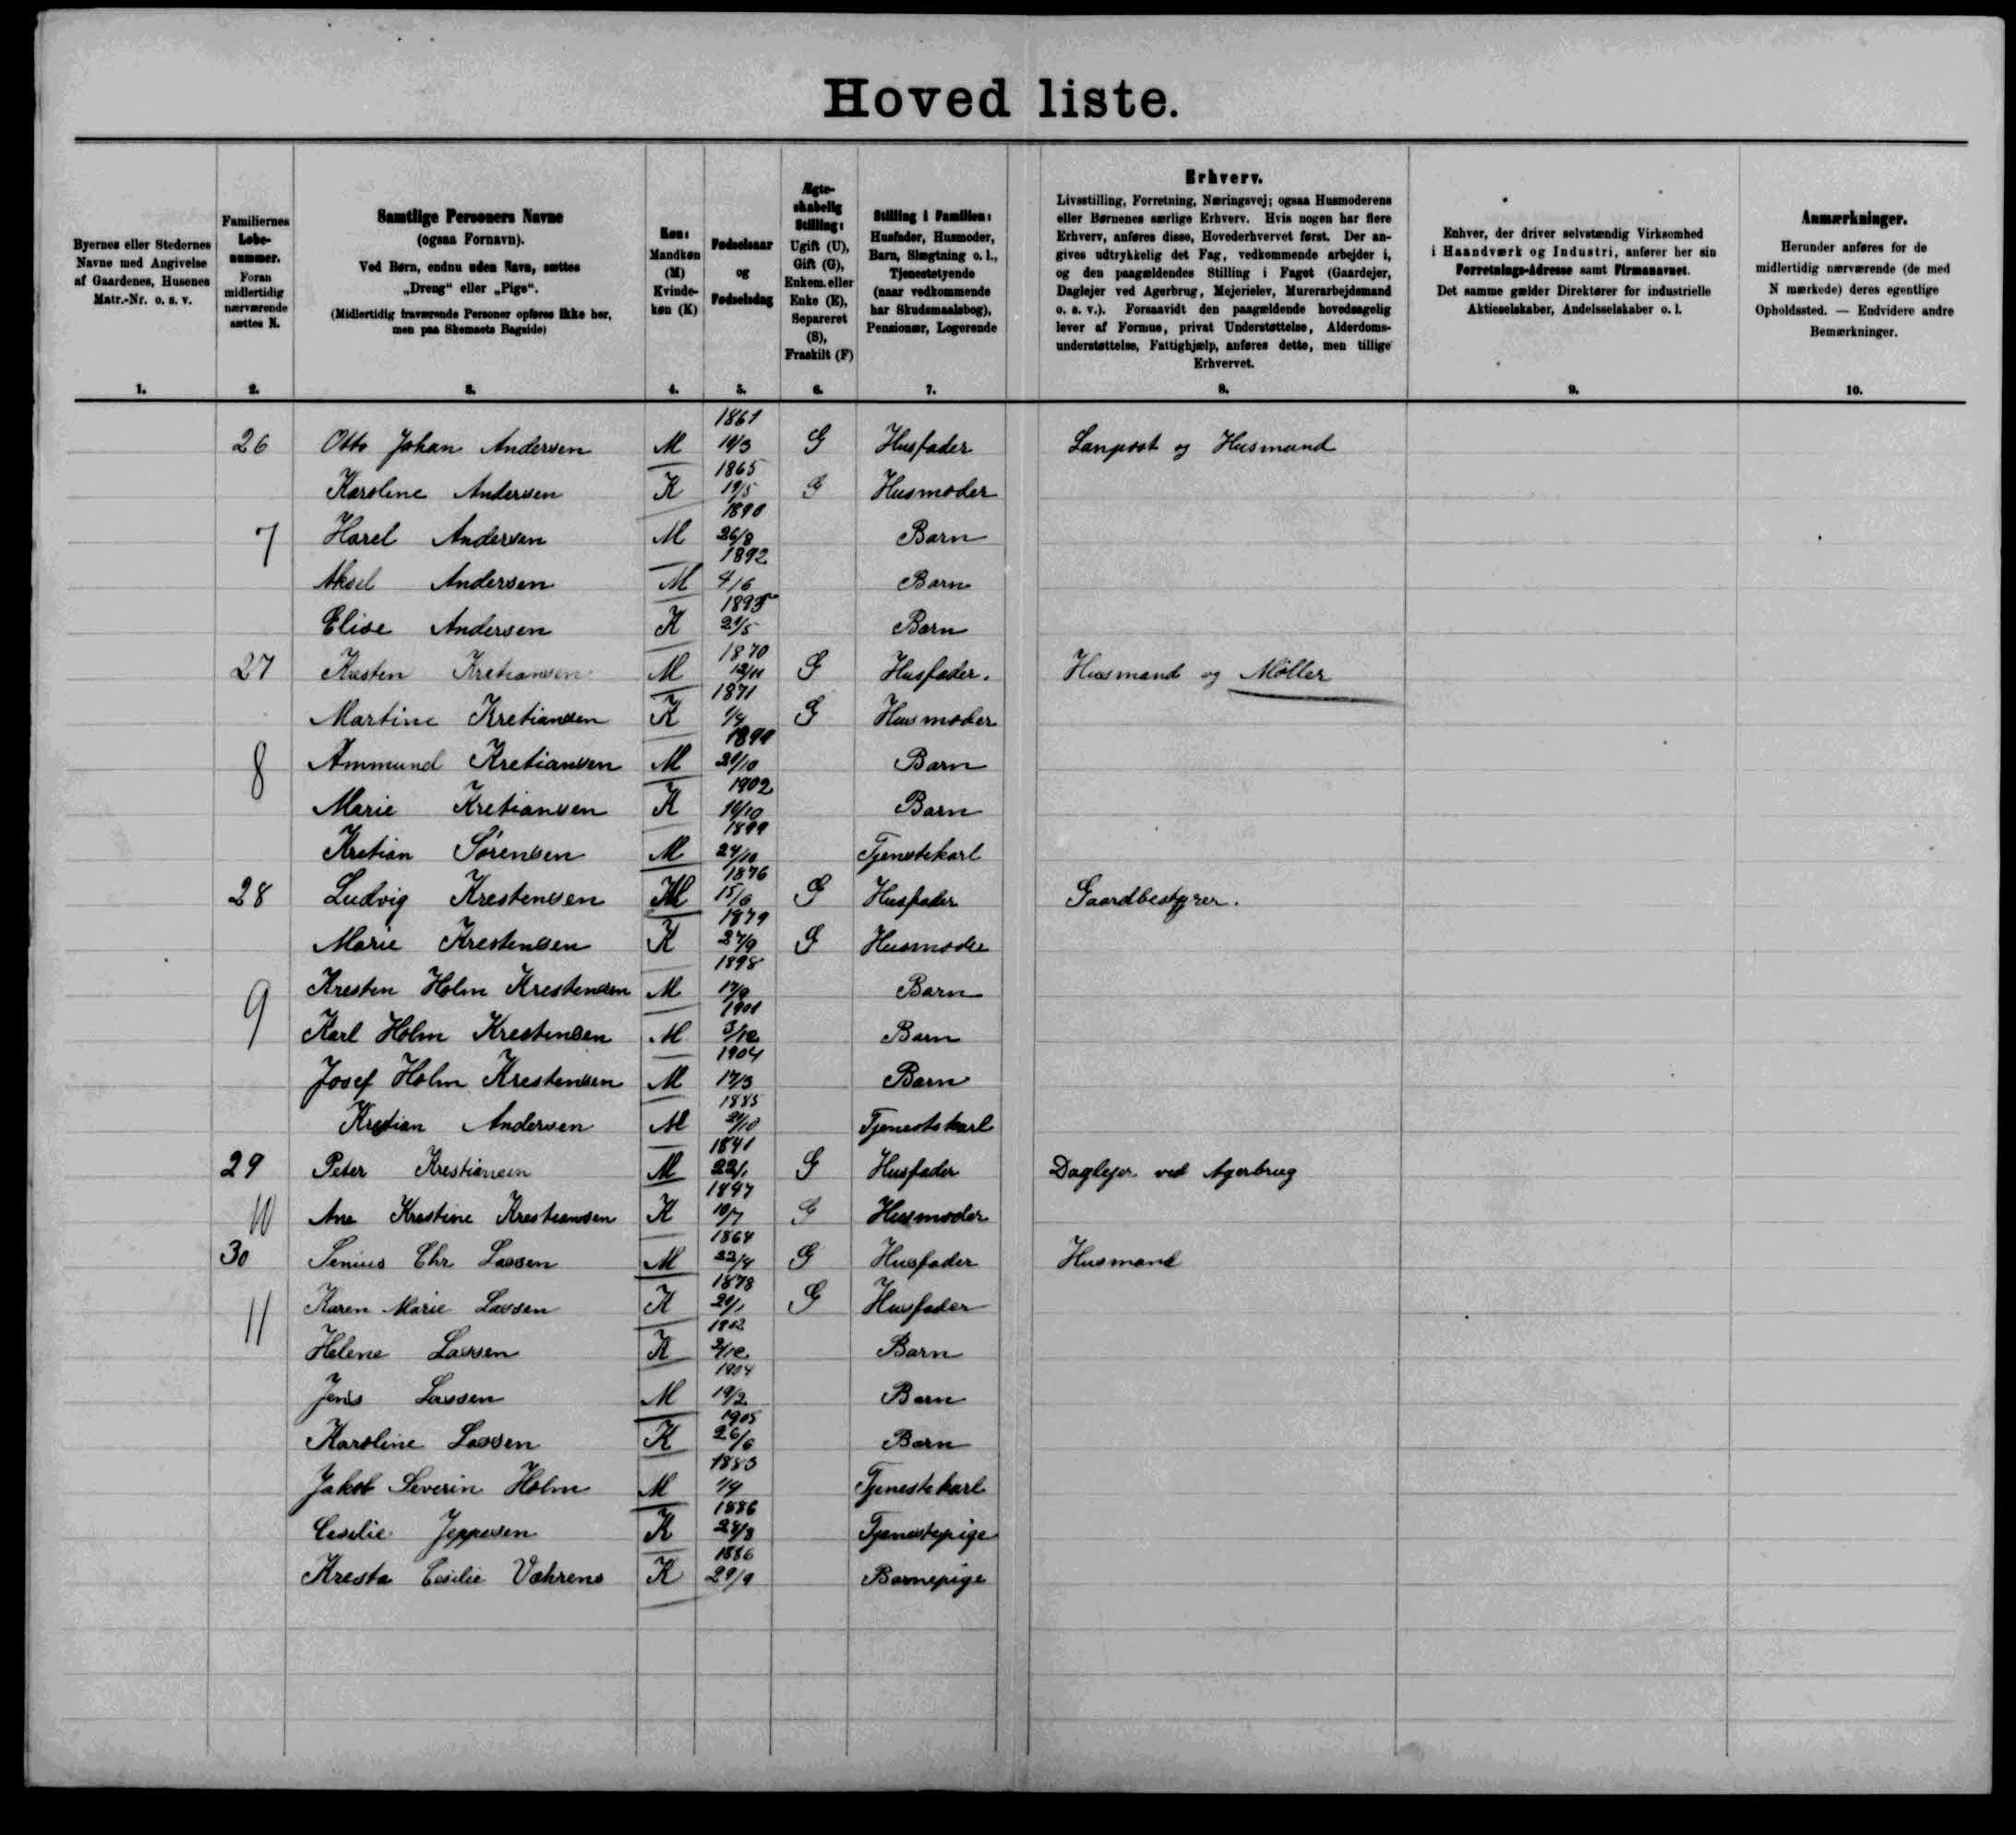 Hoved liste.
Byernes eller Stedernes
Navne med Angivelse
af Gaardenes, Husenes
Matr.-Nr. o. s. v.
1.
Familiernes
Løbe-
nummer.
Foran
midlertidig
nærværende
sættes N.
2.
Samtlige Personers Navne
(ogsaa Fornavn).
Ved Børn, endnu uden Navn, sættes
„Dreng“ eller „Pige“.
(Midlertidig fraværende Personer opføres ikke her,
men paa Skemaets Bagside)
3.
Køn:
Mandkøn
(M)
Kvinde-
køn (K)
4.
Fødselsaar
og
Fødselsdag
5.
Ægte-
skabelig
Stilling:
Ugift (U),
Gift (G),
Enkem. eller
Enke (E),
Separeret
(S),
Fraskilt (F)
6.
Stilling i Familien:
Husfader, Husmoder,
Barn, Slægtning o. l.,
Tjenestetyende
(naar vedkommende
har Skudsmaalsbog),
Pensionær, Logerende
7.
Erhverv.
Livsstilling, Forretning, Næringsvej; ogsaa Husmoderens
eller Børnenes særlige Erhverv. Hvis nogen har flere
Erhverv, anføres disse, Hovederhvervet først. Der an-
gives udtrykkelig det Fag, vedkommende arbejder i,
og den paagældendes Stilling i Faget (Gaardejer,
Daglejer ved Agerbrug, Mejerielev, Murerarbejdsmand
o. s. v.). Forsaavidt den paagældende hovedsagelig
lever af Formue, privat Understøttelse, Alderdoms-
understøttelse, Fattighjælp, anføres dette, men tillige
Erhvervet.
8.
Enhver, der driver selvstændig Virksomhed
i Haandværk og Industri, anfører her sin
Forretnings-Adresse samt Firmanavnet.
Det samme gælder Direktører for industrielle
Aktieselskaber, Andelsselskaber o. l.
9.
Anmærkninger.
Herunder anføres for de
midlertidig nærværende (de med
N mærkede) deres egentlige
Opholdssted. — Endvidere andre
Bemærkninger.
10.
26 Otto Johan Andersen M 1861 G Husfader Lanpost og Husmand
Karoline Andersen K 1865 19/5 G Husmoder
7 Harel Andersen M 1890 26/8 Barn
Aksel Andersen M 1892 4/6 Barn
Elise Andersen K 1895 21/5 Barn
27 Kresten Kretiansen M 1870 12/11 G Husfader. Husmand og Møller
Martine Kretiansen K 1871 G Husmoder
8 Ammund Kretiansen M 21/10 Barn
Marie Kretiansen K 1902 Barn
Kretian Sørensen M 1899 24/10 Tjenestekarl
28 Ludvig Krestensen M 1876 15/6 G Husfader Gaardbestyrer.
Marie Krestensen K 1879 27/9 G Husmoder
9 Kresten Holm Krestensen M 1898 17/9 Barn
Karl Holm Krestensen M 1901 3/12 Barn
Josef Holm Krestensen M 1904 17/3 Barn
Kretian Andersen M 1885 21/10 Tjenestekarl
29 Peter Krestiansen M 1841 22/1 G Husfader Daglejer ved Agerbrug
10 Ane Krestine Krestiansen K 1847 10/7 G Husmoder
30 Senius Chr Lassen M 1864 22/4 G Husfader Husmand
11 Karen Marie Lassen K 1878 G Husfader
Helene Lassen K 1902 2/12 Barn
Jens Lassen M 1904 19/2 Barn
Karoline Lassen K 1905 26/6 Barn
Jakob Severin Holm M 1883 Tjenestekarl
Cesilie Jeppesen K 1886 28/8 Tjenestepige
Kresta Cesilie Vahrens K 1886 29/9 Barnepige